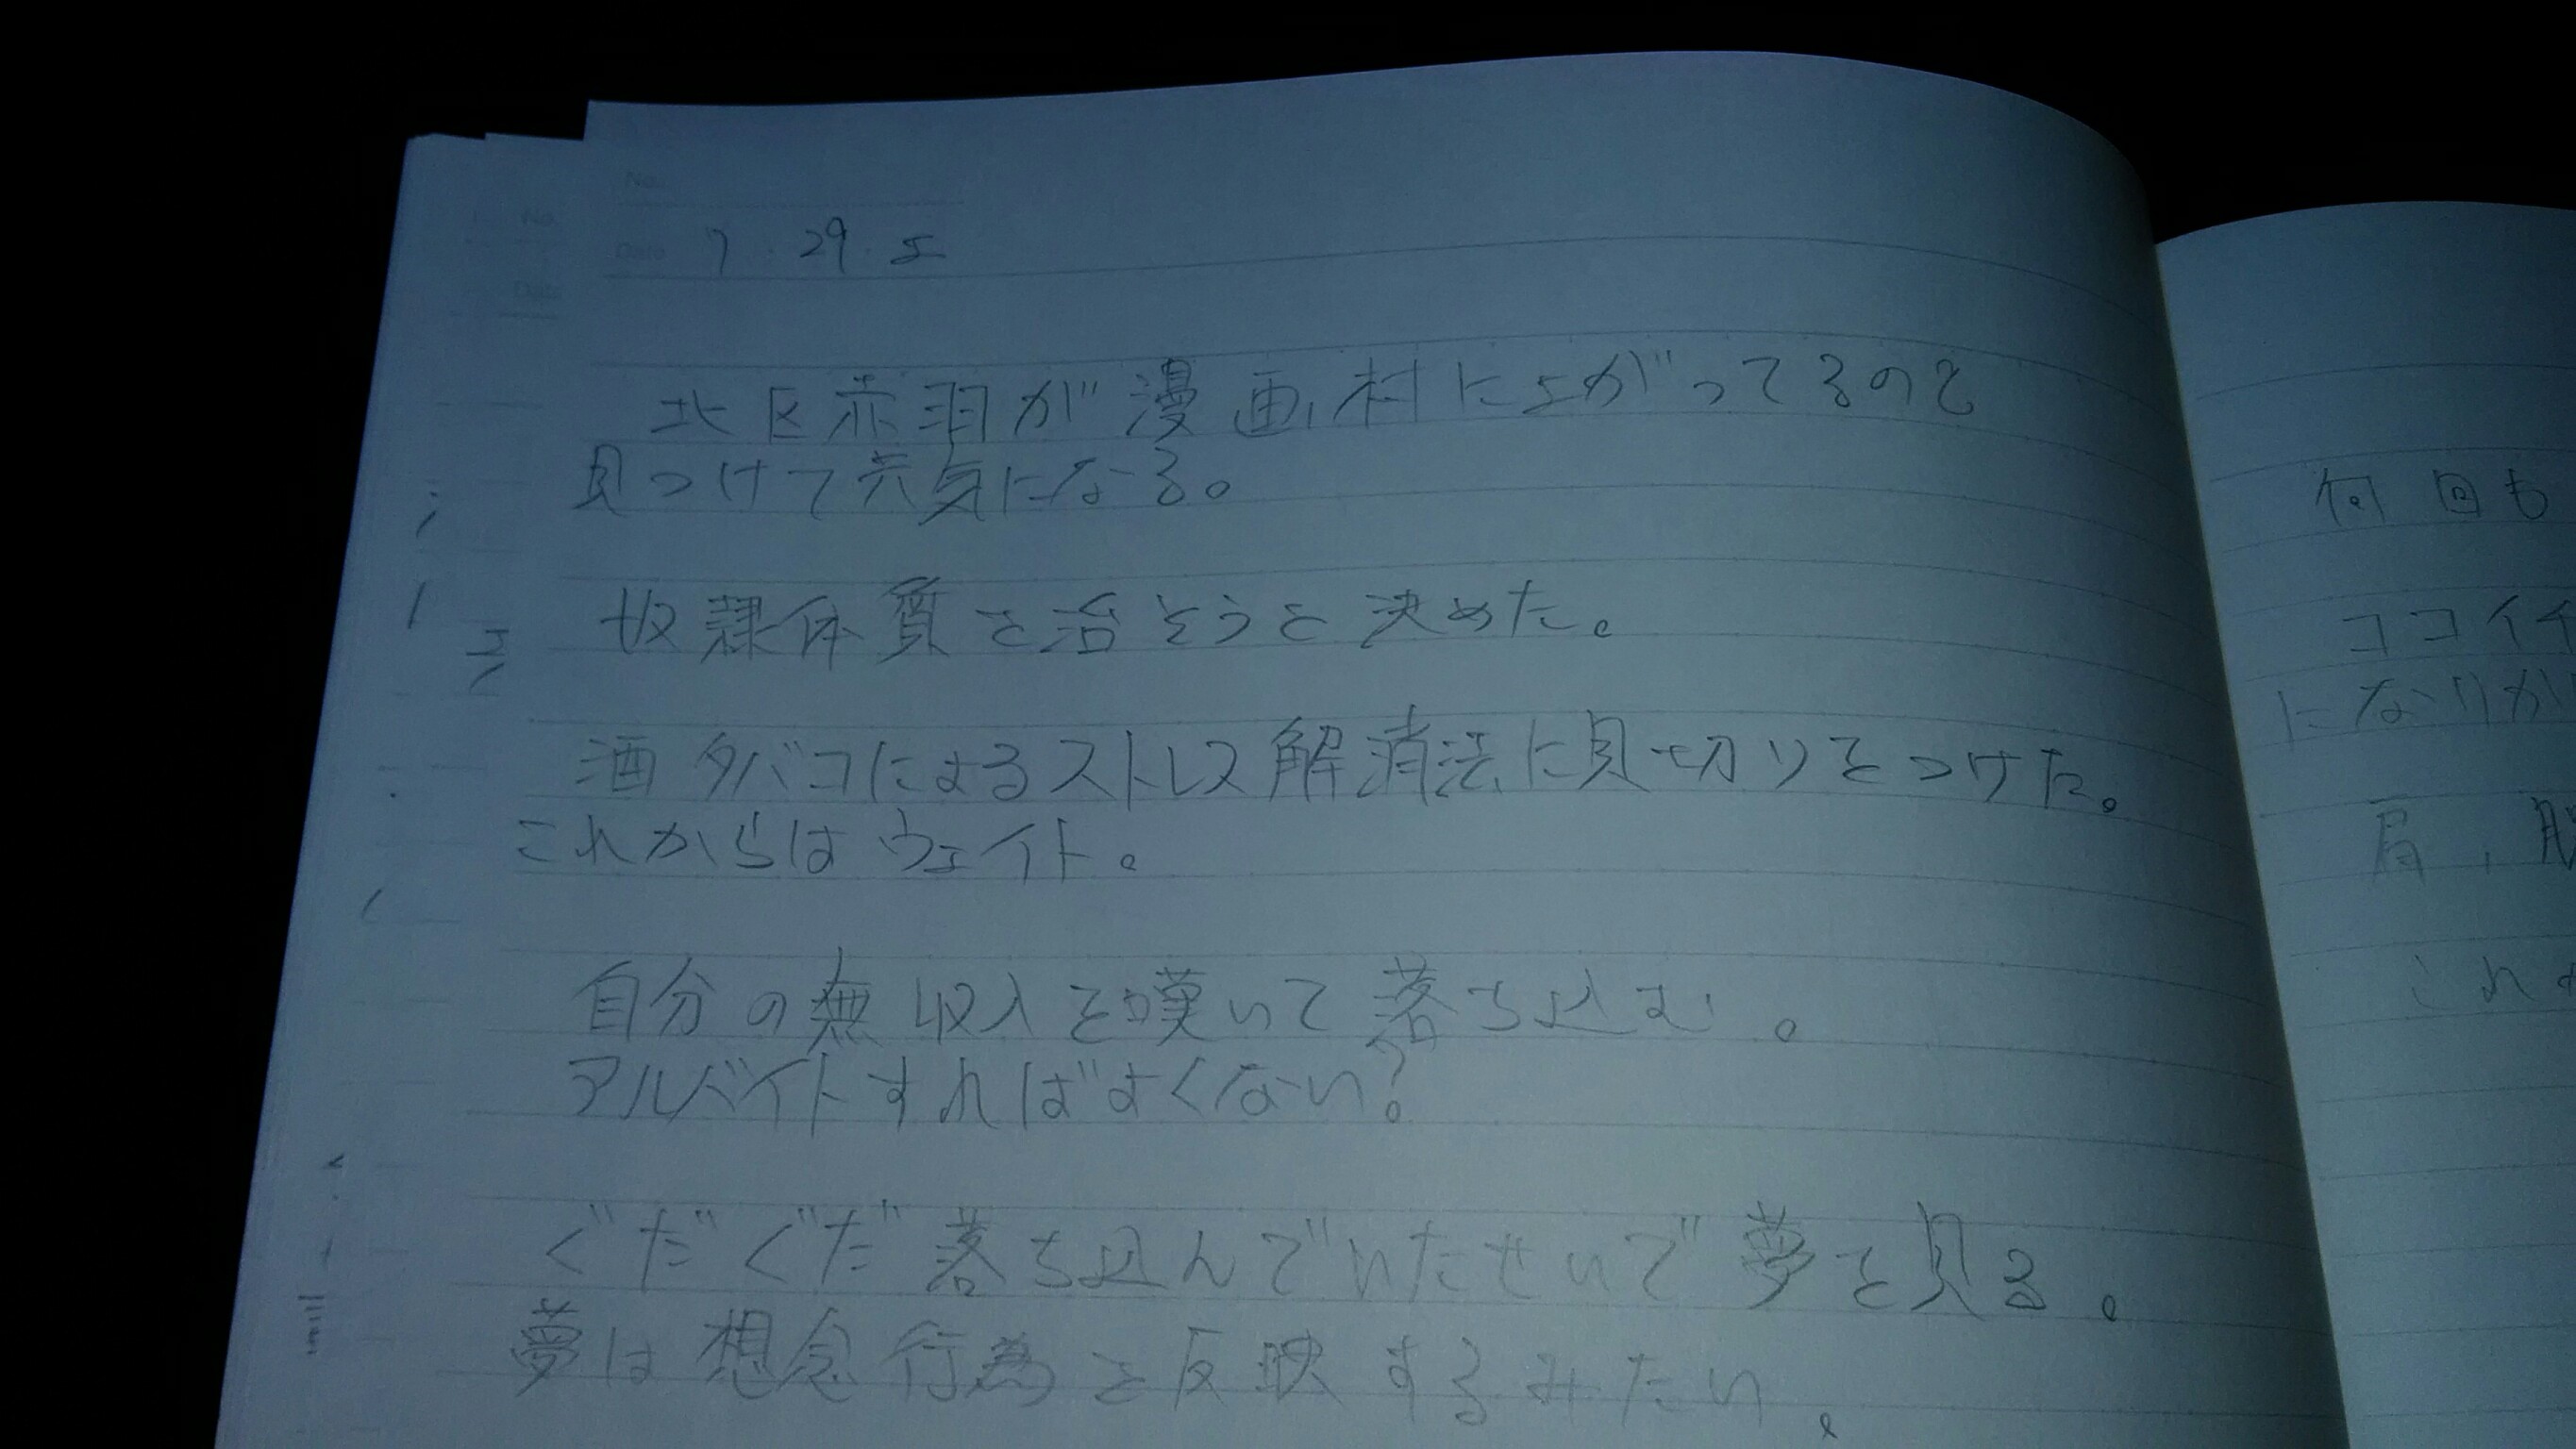 No.
Date 7・29・上
北区赤羽が漫画村に上がってるのを
見つけて元気になる。
奴隷体質を治そうと決めた。
酒タバコによるストレス解消法に見切りをつけた。
これからはウェイト。
自分の無収入を嘆いて落ち込む。
アルバイトすればよくない?
ぐだぐだ落ち込んでいたせいで夢を見る。
夢は想念行為を反映するみたい。
No.
Date
何回も
ココイチ
になりか
肩、脳
これ